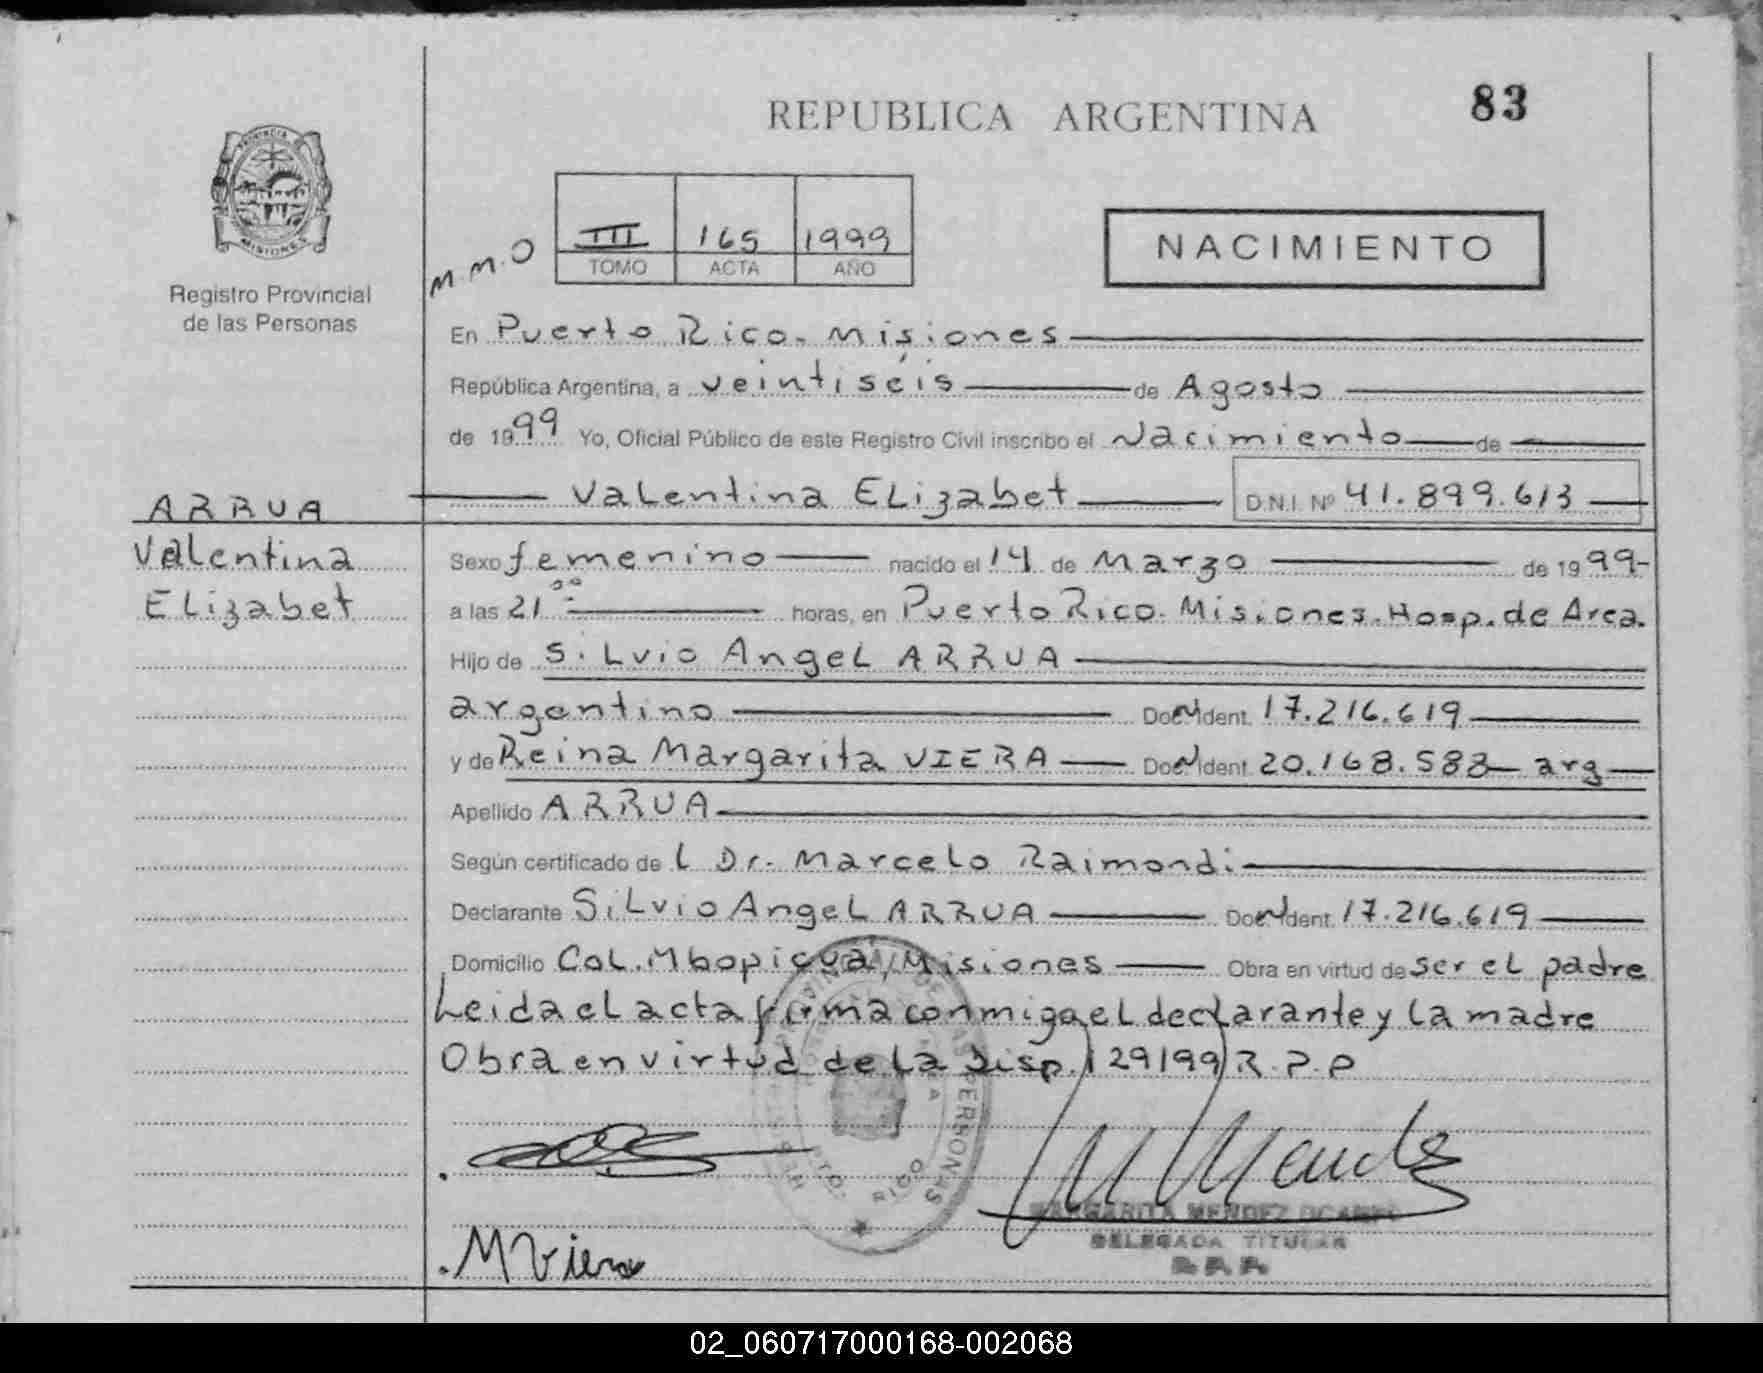 REPUBLICA ARGENTINA
83
PROVINCIA
MISIONES
Registro Provincial
de las Personas
M.M.O
III 165 1999
TOMO ACTA AÑO
NACIMIENTO
En Puerto Rico. Misiones
República Argentina, a veintiséis de Agosto
de 1999 Yo, Oficial Público de este Registro Civil inscribo el Nacimiento de
Valentina Elizabet D.N.I. Nº 41.899.613
ARRUA
Valentina
Elizabet
Sexo femenino nacido el 14 de Marzo de 1999-
a las 21 00 horas, en Puerto Rico. Misiones. Hosp. de Area.
Hijo de Silvio Angel ARRUA
argentino Doc. Ident. 17.216.619
y de Reina Margarita VIERA Doc. Ident. 20.168.588 arg
Apellido ARRUA
Según certificado del Dr. Marcelo Raimondi
Declarante Silvio Angel ARRUA Doc. Ident. 17.216.619
Domicilio Col. Mbopicuá, Misiones Obra en virtud de ser el padre
Leida el acta firma conmigo el declarante y la madre
Obra en virtud de la Disp. 129/99 R.P.P
PERSONAS
PTO. RICO
M Viera
M Mendez
MARGARITA MENDEZ OCAMPO
DELEGADA TITULAR
R.P.P.
02_060717000168-002068